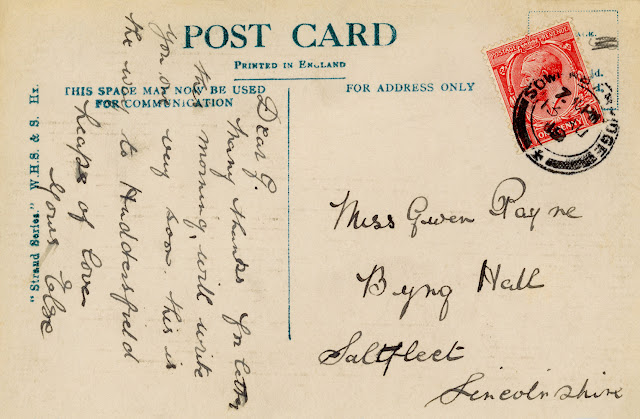 POST CARD
PRINTED IN ENGLAND
THIS SPACE MAY NOW BE USED
FOR COMMUNICATION
FOR ADDRESS ONLY
"Strand Series." W.H.S. & S. Hx.
Dear G.
Many thanks for letter
this morning, will write
you one very soon. this is
the way to Huddersfield
heaps of love
Yours Elsie
Miss Gwen Payne
Byng Hall
Saltfleet
Lincolnshire
POSTAGE REVENUE
ONE PENNY
SOWERBY BRIDGE